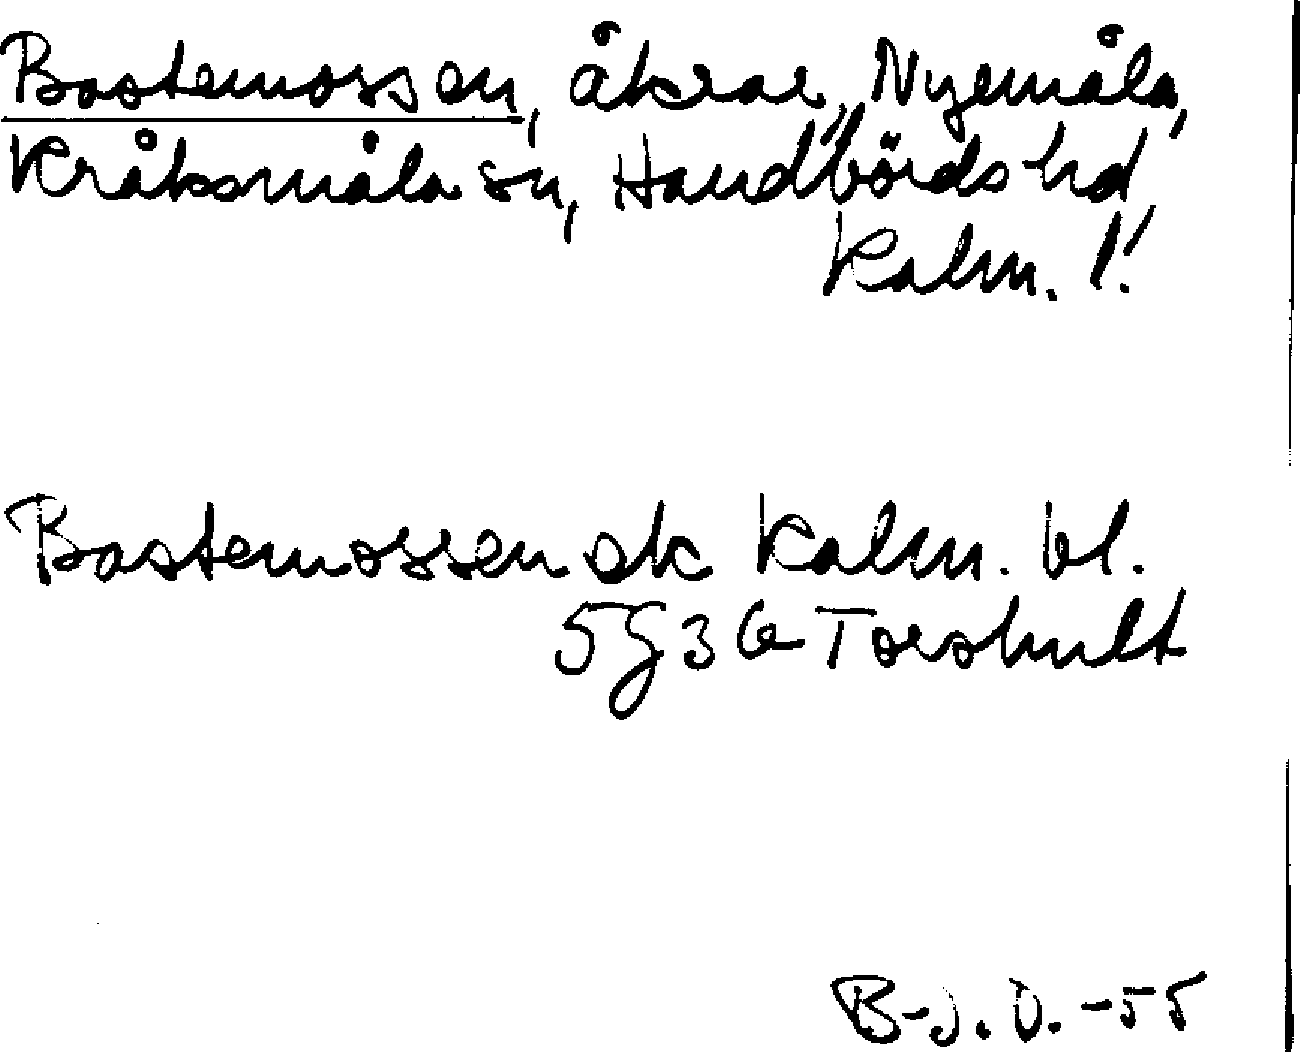 Bastemossen, åkrar, Nyemåla,
Kråksmåla sn, Handbörds hd,
Kalm. l.
Bastemossen ek Kalm. bl.
5G3G Torshult
B-J. O. -55